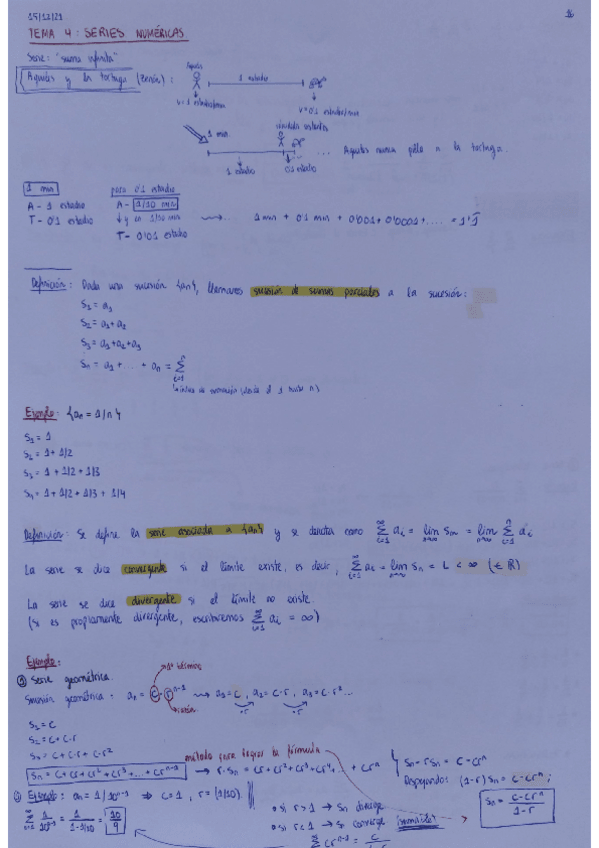 15/12/21
16
TEMA 4: SERIES NUMÉRICAS
Serie: "suma infinita"
Aquiles y la tortuga (Zenón):
Aquiles
1 estadio
v=1 estadio/min
v=0'1 estadio/min
1 min
1 estadio
0'1 estadio
... Aquiles nunca pilla a la tortuga.
1 min
A - 1 estadio
T - 0'1 estadio
para 0'1 estadio
A - 1/10 min
↓ y en 1/10 min
T - 0'01 estadio
1 min + 0'1 min + 0'001 + 0'0001 + .... = 1'1
Definición: Dada una sucesión {an}, llamamos sucesión de sumas parciales a la sucesión:
S1 = a1
S2 = a1 + a2
S3 = a1 + a2 + a3
Sn = a1 + ... + an = Σ
Ejemplo: {an = 1/n}
S1 = 1
S2 = 1 + 1/2
S3 = 1 + 1/2 + 1/3
S4 = 1 + 1/2 + 1/3 + 1/4
Definición: Se define la serie asociada a {an} y se denota como Σ ai = lim Sn = lim Σ ai
La serie se dice convergente si el límite existe, es decir, Σ ai = lim Sn = L < ∞ (∈ ℝ)
La serie se dice divergente si el límite no existe.
(si es propiamente divergente, escribiremos Σ ai = ∞)
Ejemplo:
1º término
① Serie geométrica.
Sucesión geométrica: an = c · r^n-1 ⇝ a1 = c, a2 = c·r, a3 = c·r² ...
razón
·r ·r
S1 = c
S2 = c + c·r
S3 = c + c·r + c·r²
método para lograr la fórmula
Sn = c + cr + cr² + cr³ + ... + cr^n-1 → r·Sn = cr + cr² + cr³ + cr⁴ + ... + cr^n
Sn - rSn = c - cr^n
Despejando: (1-r)Sn = c - cr^n;
Sn = c-cr^n / 1-r
Ejemplo: an = 1/10^n-1 ⇒ c=1, r=(1/10)
Σ 1/10^n-1 = 1/1-1/10 = 10/9
• si r > 1 → Sn diverge
• si r < 1 → Sn converge
Σ cr^n-1 = c